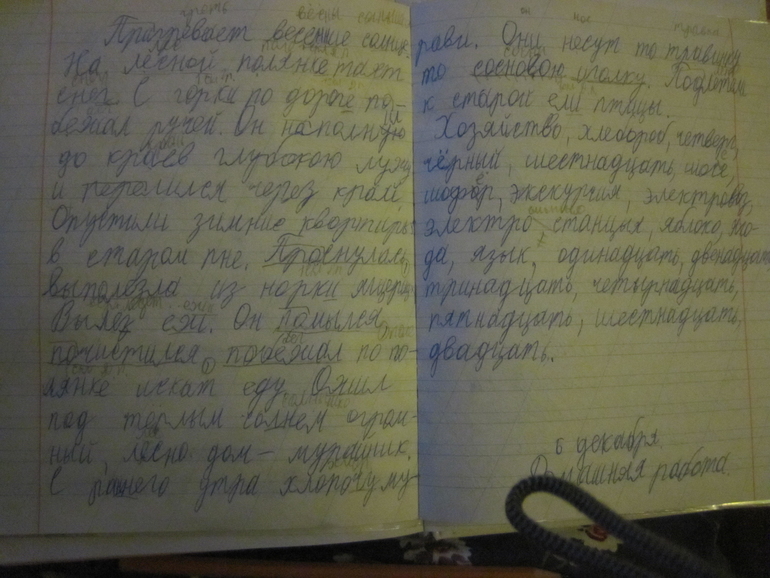 Пригревает весение солние.
На лесной поляне таят
снег. С горки по дороге по-
бежал ручей. Он наполную
до краёв глубокою лужу
и перелился через край.
Опустили зимние квартиры
в старом пне. Проснулась,
выползла из норки ящери
Вылез ёж. Он помылся
почистился побежал по по-
лянке искат еду. Ожил
под тёплым солнем огром-
ный, лесно дом - мурайник.
С раннего утра хлопочу му-
рави. Они несут то травинку
то сосновою иголку.
к старой ели птицы.
Хозяйство, хлебороб, четверг,
чёрный, шестнадцать, шоссе
шофёр, экскурсия, электровоз,
электро станцыя, яблоко, яго-
да, язык, одинадцать, двенадцать
тринадцать, четырнадцать,
пятнадцать, шестнадцать,
двадцать.
6 декабря.
Домашняя работа.